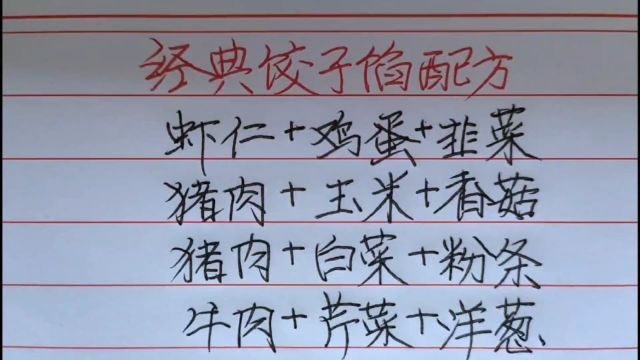 经典饺子馅配方
虾仁+鸡蛋+韭菜
猪肉+玉米+香菇
猪肉+白菜+粉条
牛肉+芹菜+洋葱